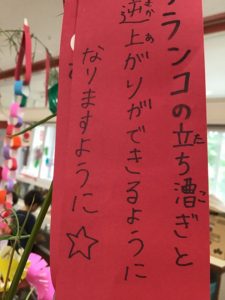 ブランコの立ち漕ぎと
逆上がりができるように
なりますように☆